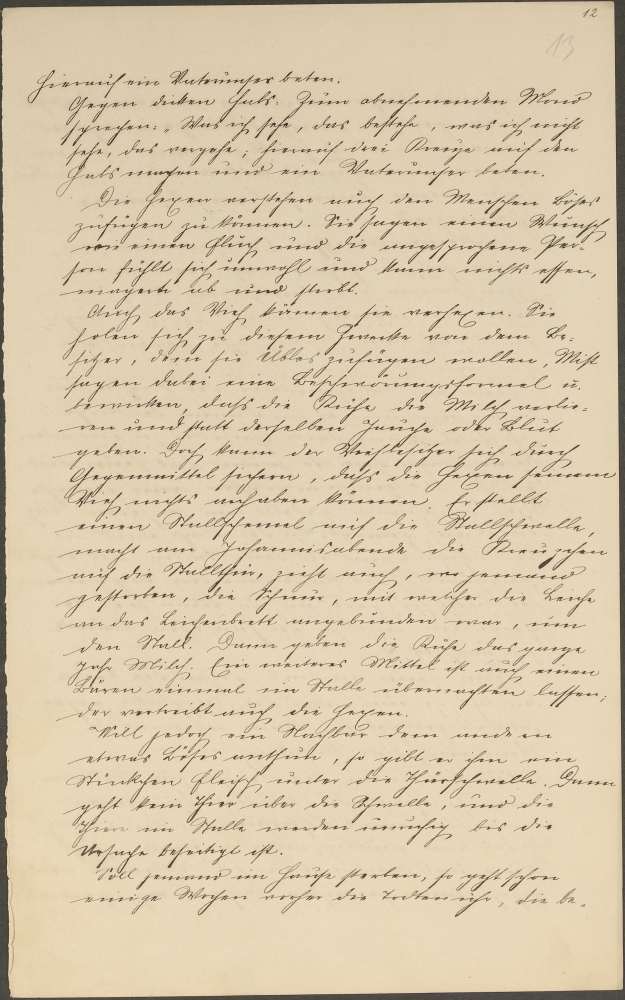 12
13
hierauf ein Vaterunser beten.
Gegen dicken Hals: Zum abnehmenden Mond
sprechen: „Was ich sehe, das bestehe, was ich nicht
sehe, das vergehe; hierauf drei Kreuze auf den
Hals machen und ein Vaterunser beten.
Die Hexen verstehen auch den Menschen Böses
zufügen zu können. Sie sagen einen Wunsch
wie einen Fluch und die angesprochene Per-
son fühlt sich unwohl und kann nichts essen,
magert ab und stirbt.
Auch das Vieh können sie verhexen. Sie
holen sich zu diesem Zwecke von dem Be-
sitzer, dem sie Übles zufügen wollen, Mist
sagen dabei eine Beschwörungsformel u.
bewirken, daß die Kühe die Milch verlie-
ren und statt derselben Jauche oder Blut
geben. Doch kann der Viehbesitzer sich durch
Gegenmittel sichern, daß die Hexen seinem
Vieh nichts anhaben können. Er stellt
einen Stallschemel auf die Stallschwelle,
macht am Johannisabende die Kreuzchen
auf die Stallthür, zieht auch, wo jemand
gestorben, die Schnur, mit welcher die Leiche
an das Leichenbrett angebunden war, um
den Stall. Dann geben die Kühe das ganze
Jahr Milch. Ein weiteres Mittel ist auch einen
Bären einmal im Stalle übernachten lassen;
der vertreibt auch die Hexen.
Will jedoch ein Nachbar dem anderen
etwas Böses anthun, so gibt er ihm ein
Stückchen Fleisch unter die Thürschwelle. Dann
geht kein Thier über die Schwelle, und die
Thiere im Stalle werden unruhig bis die
Ursache beseitigt ist.
Soll jemand im Hause sterben, so geht schon
einige Wochen vorher die Todtenuhr, die be-